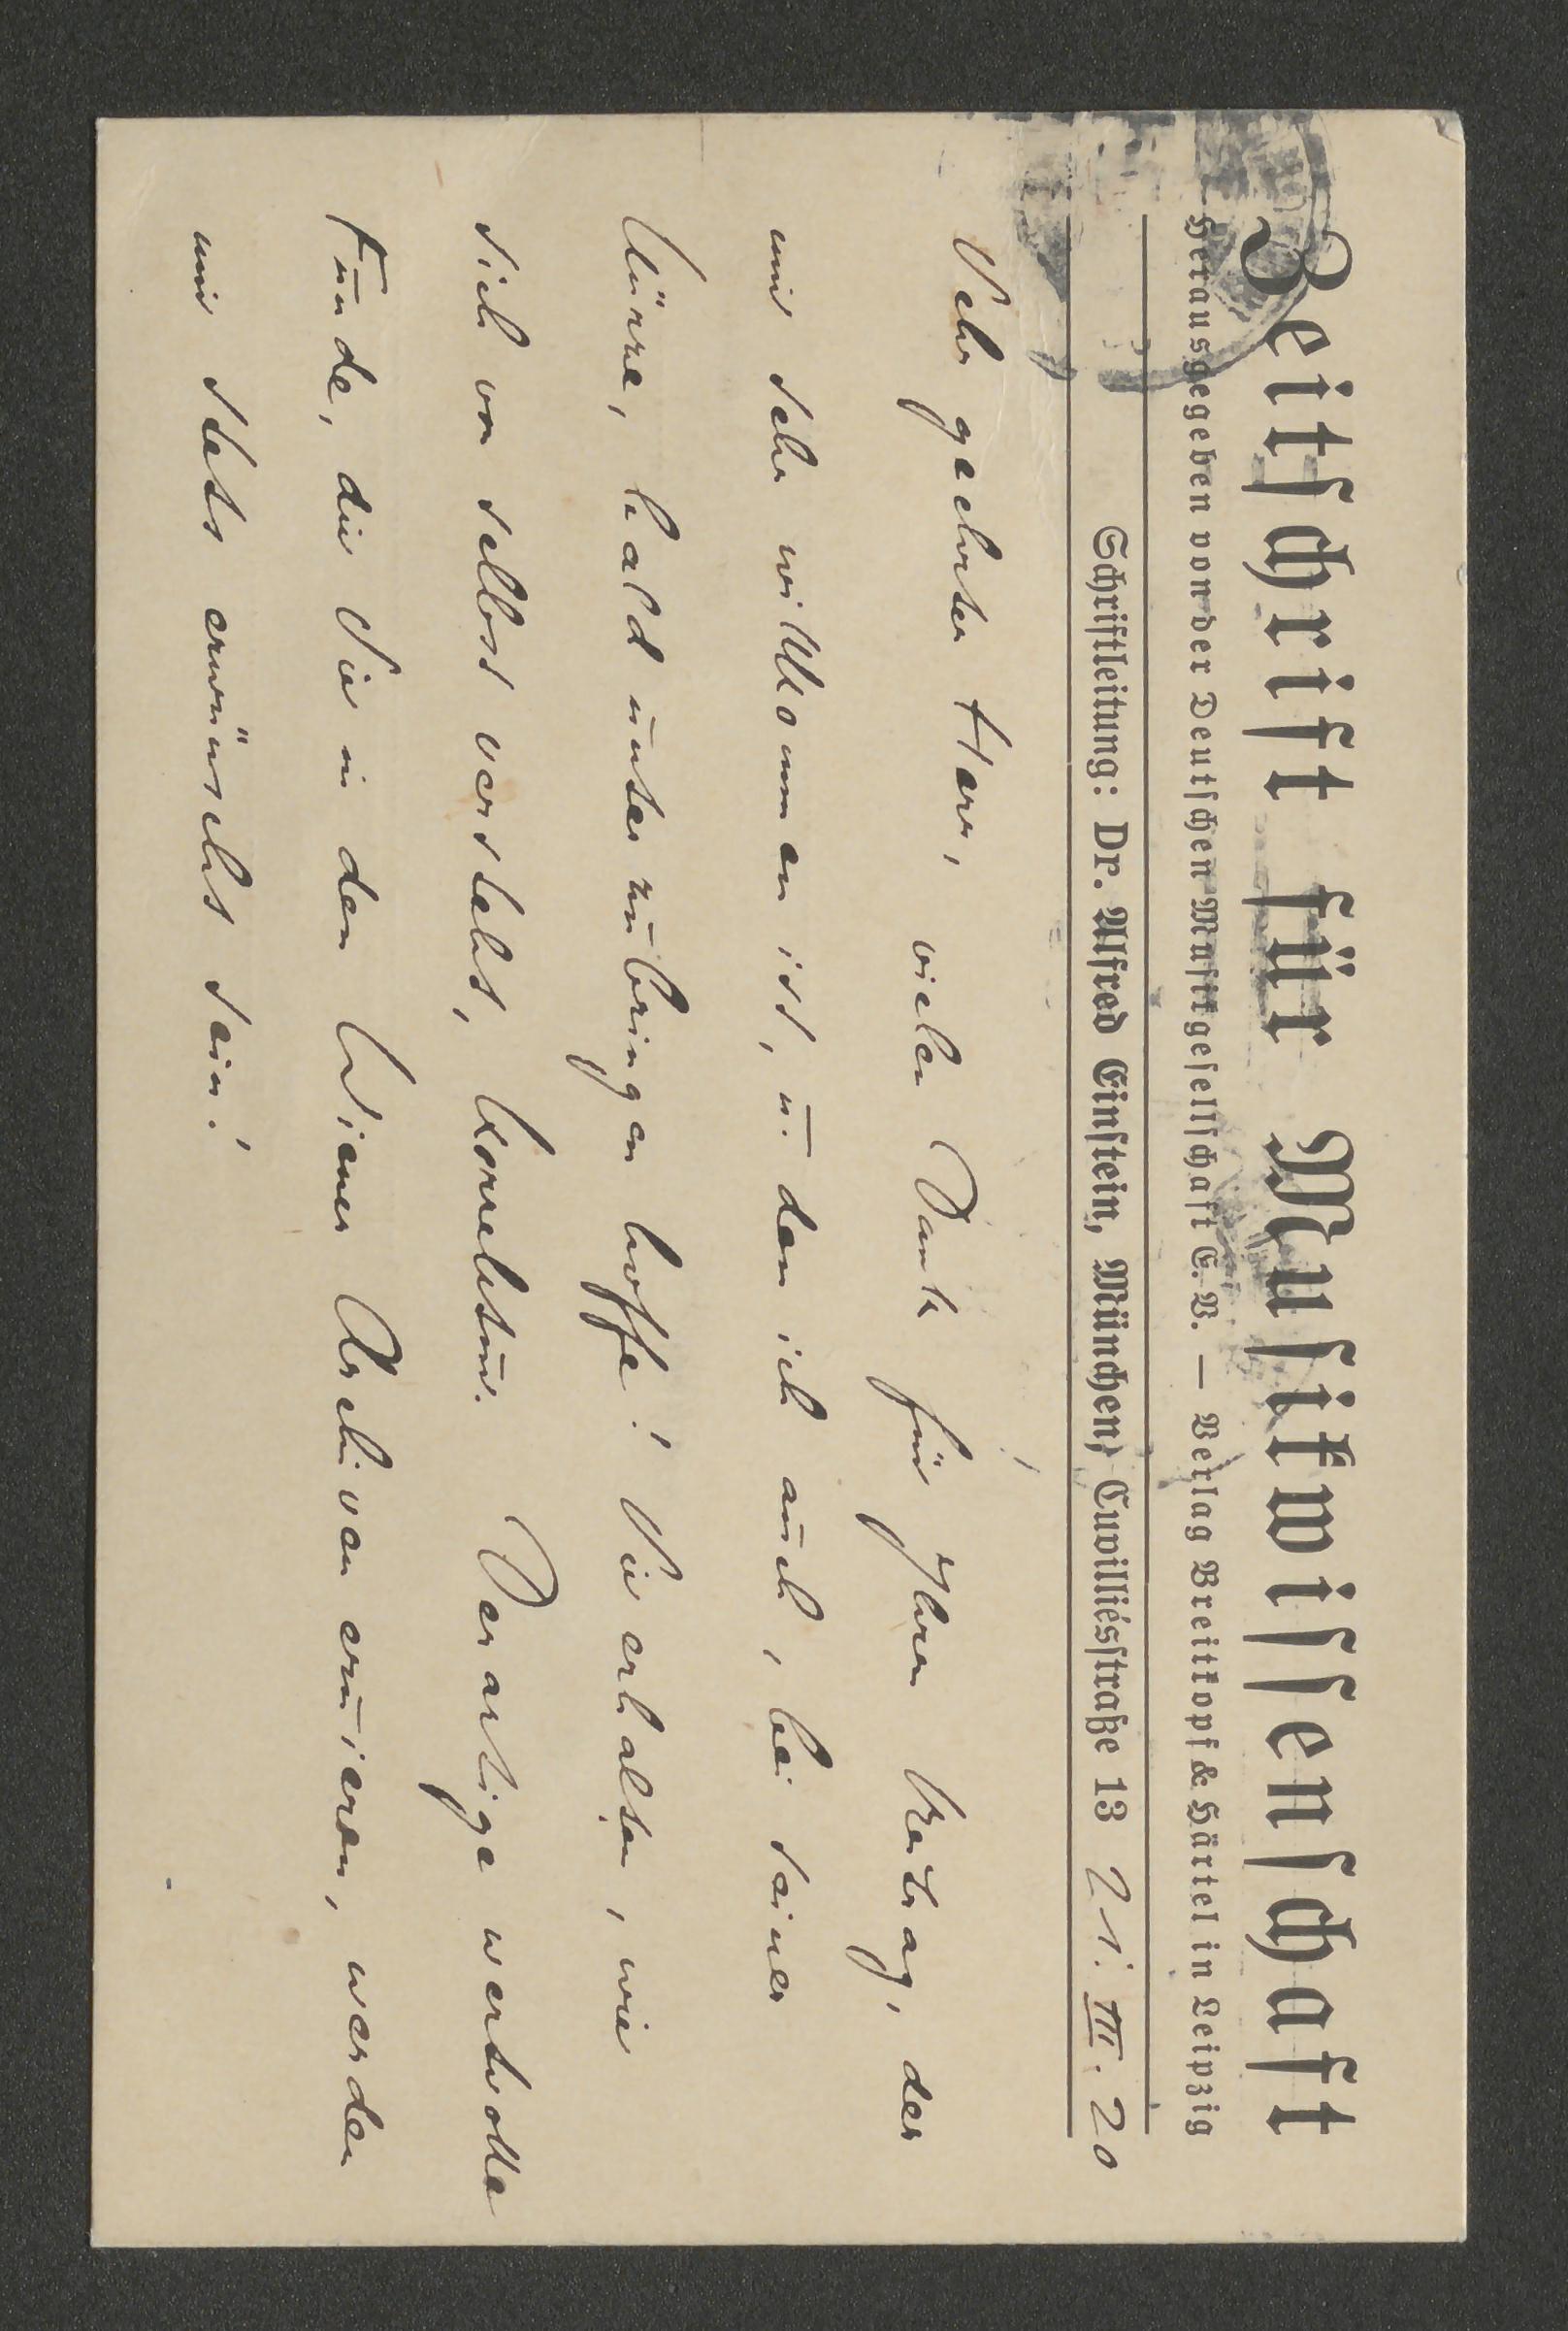 Zeitschrift für Musikwissenschaft
Herausgegeben von der Deutschen Musikgesellschaft E. V. — Verlag Breitkopf & Härtel in Leipzig
Schriftleitung: Dr. Alfred Einstein, München, Cuvilliésstraße 13 21. III. 20
Sehr geehrter Herr, vielen Dank für Ihren Beitrag, der
mir sehr willkommen ist, u. den ich auch, bei seiner
Kürze, bald unterzubringen hoffe! Sie erhalten, wie
sich von selbst versteht, Korrektur. Derartige wertvolle
Funde, die Sie in den Wiener Archiven eruieren, werden
mir stets erwünscht sein!